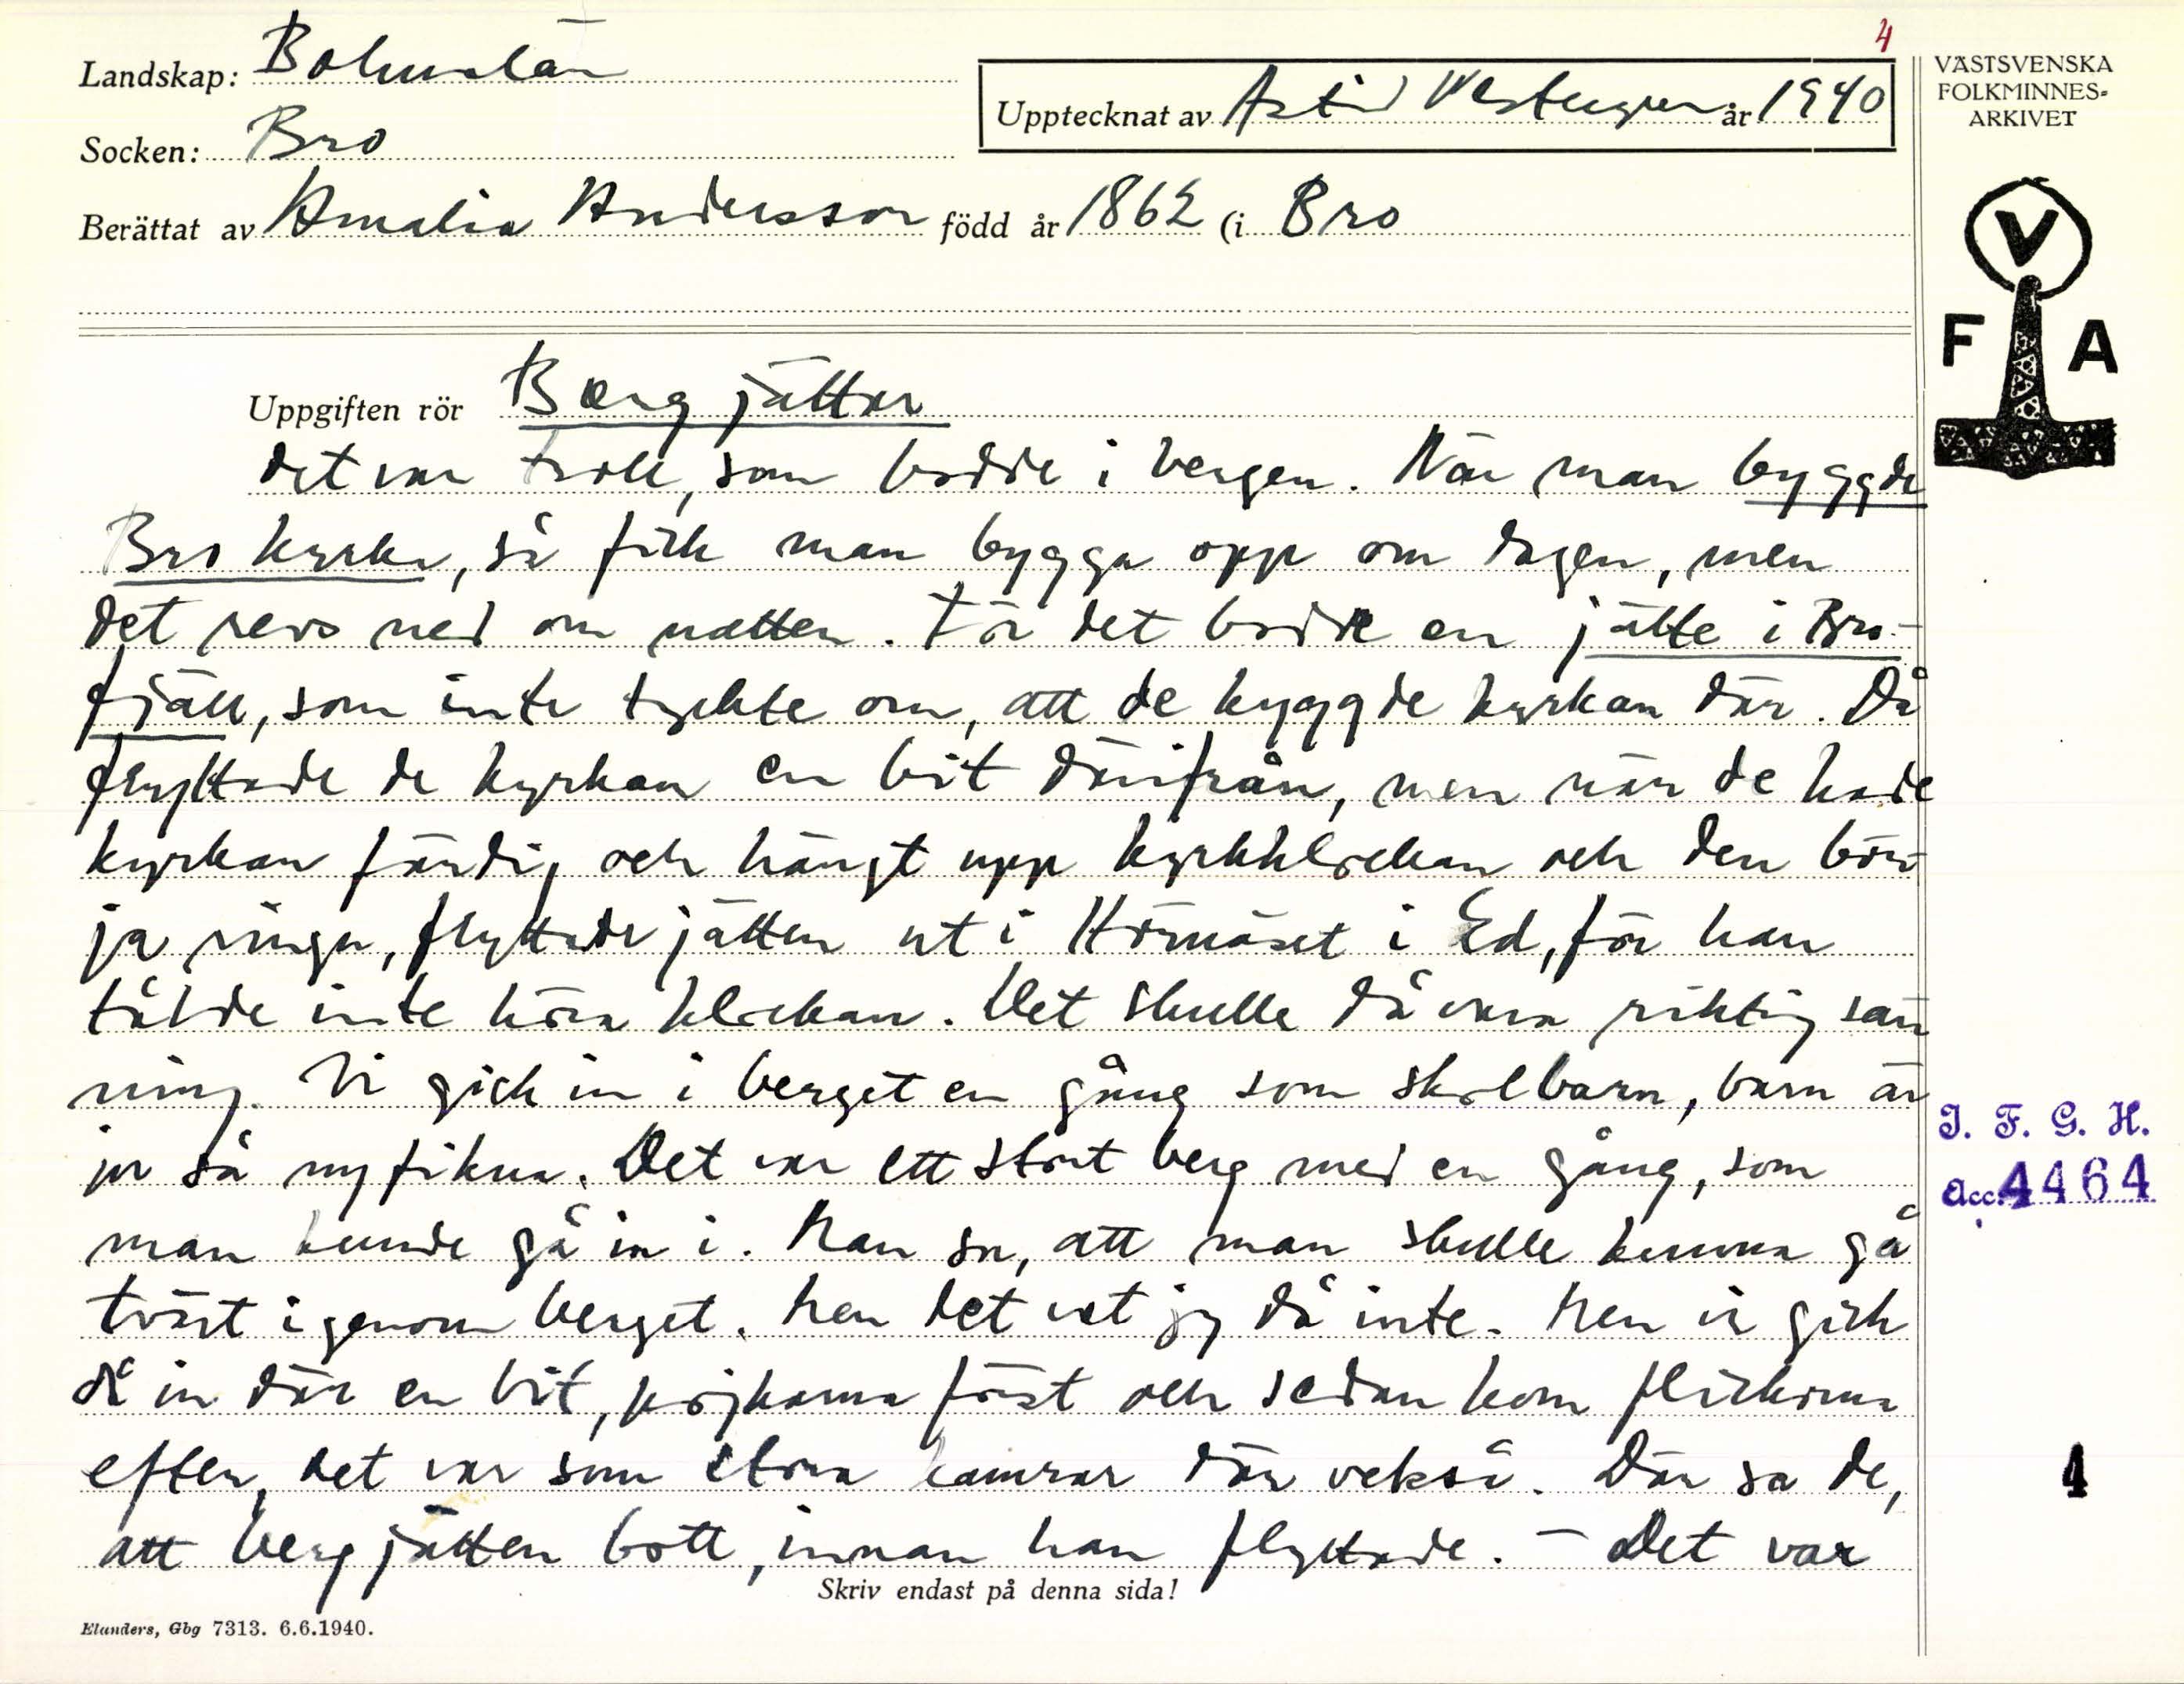 4
Landskap: Bohuslän
Upptecknat av Astrid år 1940
VÄSTSVENSKA
FOLKMINNES-
ARKIVET
Socken: Bro
Berättat av Amalia Andersson född år 1862 (i Bro
V
F A
Uppgiften rör Bergjättar
det var troll, som bodde i bergen. När man byggde
Bro kyrka, så fick man bygga opp om dagen, men
det revs ned om natten. För det bodde en jätte i Bro-
fjäll, som inte tyckte om, att de byggde kyrkan där. Då
flyttade de kyrkan en bit därifrån, men när de hade
kyrkan färdig och hängt upp kyrkklockan och den bör-
ja ringa, flyttade jätten ut i Hörnäset i Ed, för han
tålde inte höra klockan. Det skulle då vara riktig san
ning. Vi gick in i berget en gång som skolbarn, barn är
ju så nyfikna. Det var ett stort berg med en gång, som
man kunde gå in i. Man sa, att man skulle kunna gå
tvärt igenom berget. Men det vet jag då inte. Men vi gick
då in där en bit, pojkarna först och sedan kom flickorna
efter, det var som stora kamrar där också. Där sa de,
att bergjätten bott, innan han flyttade. - Det var
J. F. G. H.
Acc. 4464
4
Skriv endast på denna sida!
Elanders, Gbg 7313. 6.6.1940.